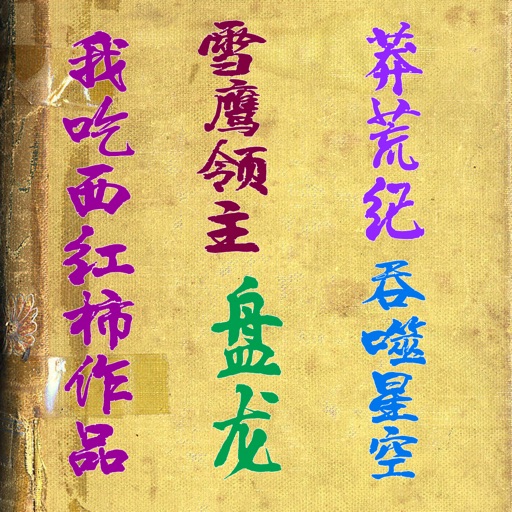 我吃西红柿作品
雪鹰领主
盘龙
莽荒纪
吞噬星空